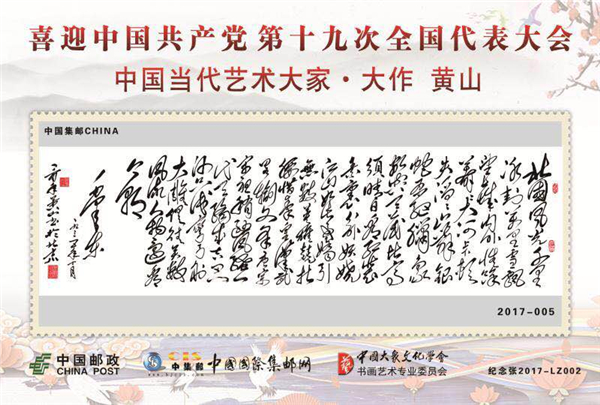 喜迎中国共产党第十九次全国代表大会
中国当代艺术大家·大作 黄山
中国集邮CHINA
北国风光千里
冰封万里雪飘
望长城内外惟余
莽莽大河上下顿
失滔滔山舞银
蛇原驰蜡象
欲与天公试比高
须晴日看红装
素裹分外妖娆
江山如此多娇引
无数英雄竞折
腰惜秦皇汉武
略输文采唐宗
宋祖稍逊风骚一
代天骄成吉思
汗只识弯弓射
大雕俱往矣数
风流人物还看
今朝
毛泽东
2017-005
中国邮政
CHINA POST
CIS
中集邮
中国国际集邮网
中国大众文化学会
书画艺术专业委员会
纪念张2017-LZ002